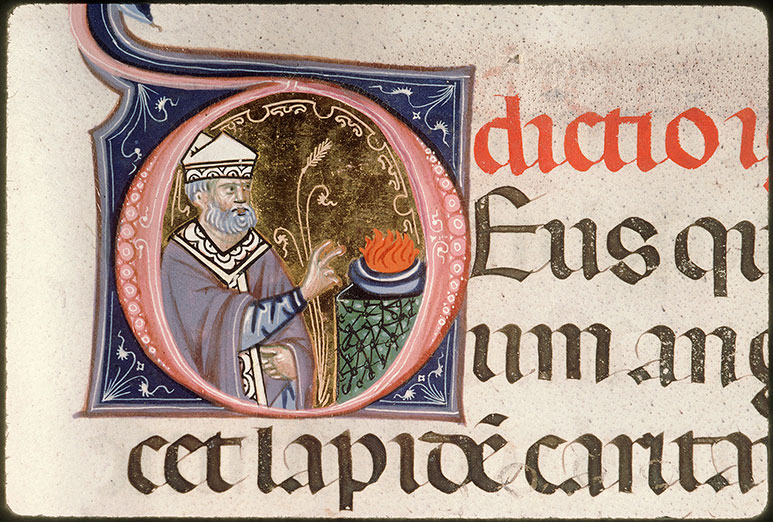 dictio ig
DEus qu
um ang
cet lapidē carita